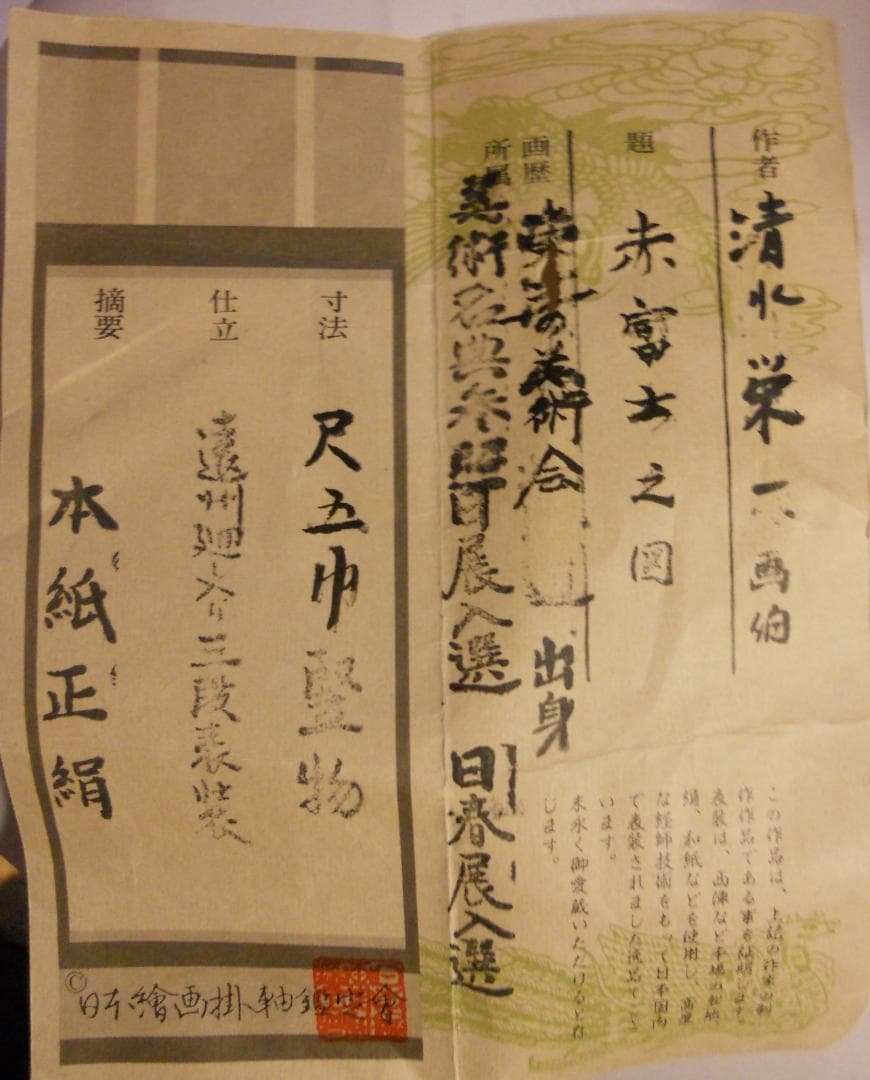 作者 清水栄一画伯
題 赤富士之図
画歴 美術会 出身
所属 美術名典参照 日展入選 日春展入選
この作品は、上記の作家の新
作作品である事を証明します。
表装は、
絹、和紙などを使用し、高度
な経師技術をもって日本国内
で表装されました逸品でござ
います。
末永く御愛蔵いただけると存
じます。
寸法 尺五巾竪物
仕立 遠州廻入り三段表装
摘要 本紙正絹
© 日本繪画掛軸鑑定會